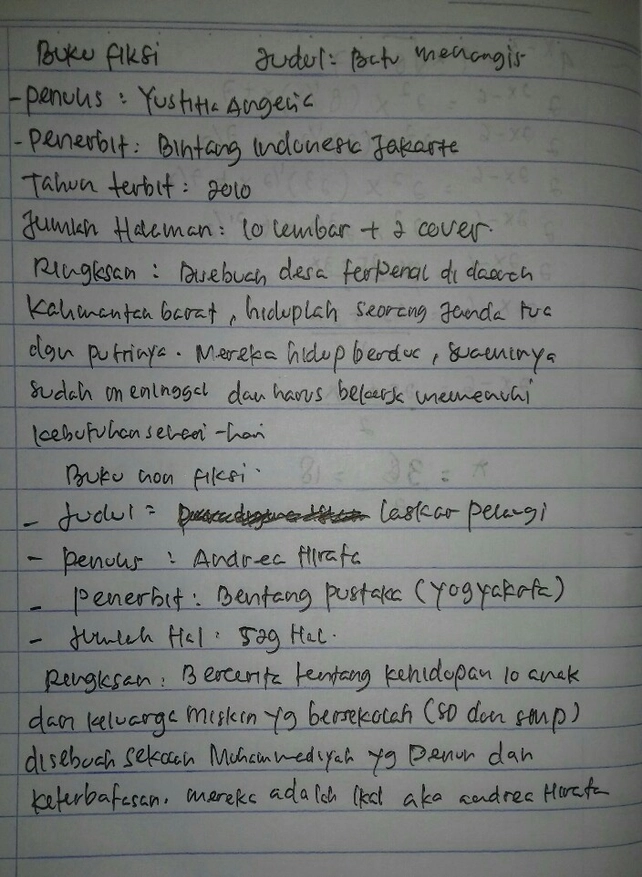 Buku fiksi Judul: Batu menangis
- Penulis : Yustitia Angelia
- Penerbit : Bintang Indonesia Jakarta
Tahun terbit : 2010
Jumlah Halaman : 10 lembar + 2 cover.
Ringksan : Disebuah desa terpencil di daerah
Kalimantan barat, hiduplah seorang Janda tua
dan putrinya. Mereka hidup berdua, suaminya
sudah meninggal dan harus bekerja memenuhi
kebutuhan sehari-hari
Buku non fiksi.
- Judul = Laskar pelangi
- Penulis : Andrea Hirata
- Penerbit : Bentang pustaka (Yogyakarta)
- Jumlah Hal : 529 Hal.
Ringksan : Bercerita tentang kehidupan 10 anak
dari keluarga miskin yg bersekolah (SD dan smp)
disebuah sekolah Muhammadiyah yg penuh dan
keterbatasan. mereka adalah Ikal aka andrea Hirata